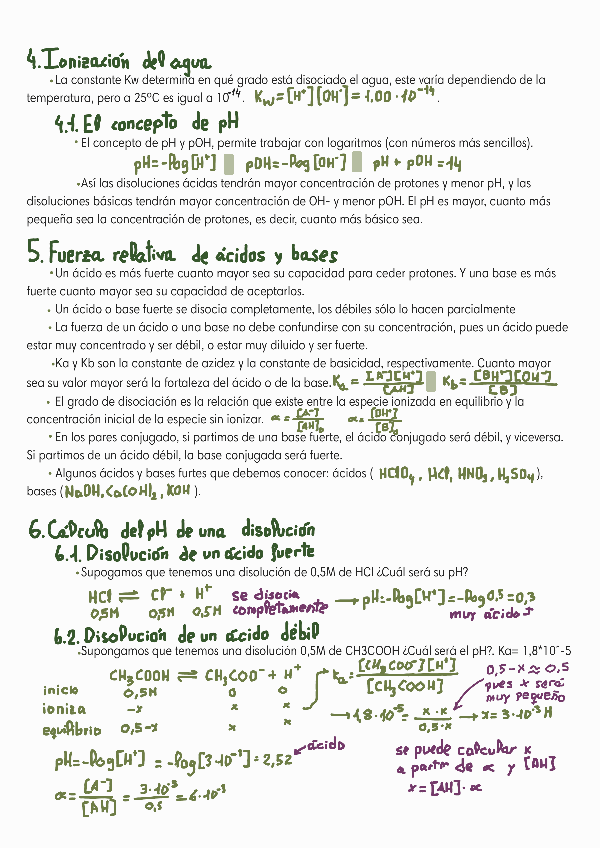 4. Ionización del agua
•La constante Kw determina en qué grado está disociado el agua, este varía dependiendo de la
temperatura, pero a 25ºC es igual a 10⁻¹⁴. Kw = [H⁺][OH⁻] = 1,00 · 10⁻¹⁴.
4.1. El concepto de pH
• El concepto de pH y pOH, permite trabajar con logaritmos (con números más sencillos).
pH = -log [H⁺] pOH = -log [OH⁻] pH + pOH = 14
•Así las disoluciones ácidas tendrán mayor concentración de protones y menor pH, y las
disoluciones básicas tendrán mayor concentración de OH- y menor pOH. El pH es mayor, cuanto más
pequeña sea la concentración de protones, es decir, cuanto más básico sea.
5. Fuerza relativa de ácidos y bases
•Un ácido es más fuerte cuanto mayor sea su capacidad para ceder protones. Y una base es más
fuerte cuanto mayor sea su capacidad de aceptarlos.
• Un ácido o base fuerte se disocia completamente, los débiles sólo lo hacen parcialmente
• La fuerza de un ácido o una base no debe confundirse con su concentración, pues un ácido puede
estar muy concentrado y ser débil, o estar muy diluido y ser fuerte.
•Ka y Kb son la constante de azidez y la constante de basicidad, respectivamente. Cuanto mayor
sea su valor mayor será la fortaleza del ácido o de la base. Ka = [A⁻][H⁺] / [AH] Kb = [BH⁺][OH⁻] / [B]
• El grado de disociación es la relación que existe entre la especie ionizada en equilibrio y la
concentración inicial de la especie sin ionizar. α = [A⁻] / [AH]₀ α = [OH⁻] / [B]₀
• En los pares conjugado, si partimos de una base fuerte, el ácido conjugado será débil, y viceversa.
Si partimos de un ácido débil, la base conjugada será fuerte.
• Algunos ácidos y bases furtes que debemos conocer: ácidos ( HClO₄, HCl, HNO₃, H₂SO₄ ),
bases ( NaOH, Ca(OH)₂, KOH ).
6. Cálculo del pH de una disolución
6.1. Disolución de un ácido fuerte
•Supogamos que tenemos una disolución de 0,5M de HCl ¿Cuál será su pH?
HCl ⇌ Cl⁻ + H⁺ se disocia → pH = -log [H⁺] = -log 0,5 = 0,3
0,5M 0,5M 0,5M completamente muy ácido
6.2. Disolución de un ácido débil
•Supongamos que tenemos una disolución 0,5M de CH3COOH ¿Cuál será el pH?. Ka= 1,8*10^-5
CH₃COOH ⇌ CH₃COO⁻ + H⁺ Ka = [CH₃COO⁻][H⁺] / [CH₃COOH] 0,5-x ≈ 0,5
inicio 0,5M 0 0 pues x será
ioniza -x x x muy pequeño
→ 1,8·10⁻⁵ = x·x / 0,5-x → x = 3·10⁻³ M
equilibrio 0,5-x x x
pH = -log [H⁺] = -log [3·10⁻³] = 2,52 ácido
se puede calcular x
a partir de α y [AH]
x = [AH]·α
α = [A⁻] / [AH] = 3·10⁻³ / 0,5 = 6·10⁻³